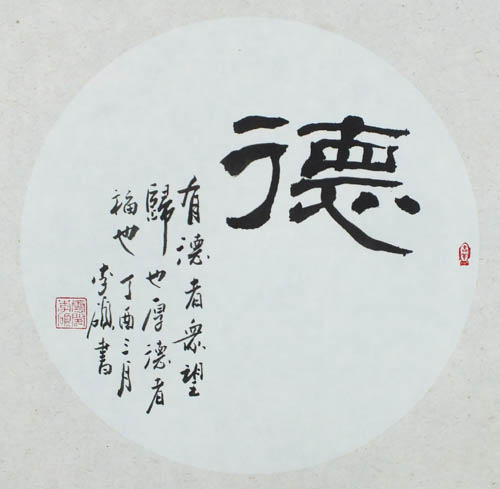 德
有德者众望
歸也厚德者
福也丁酉三月
李硕書